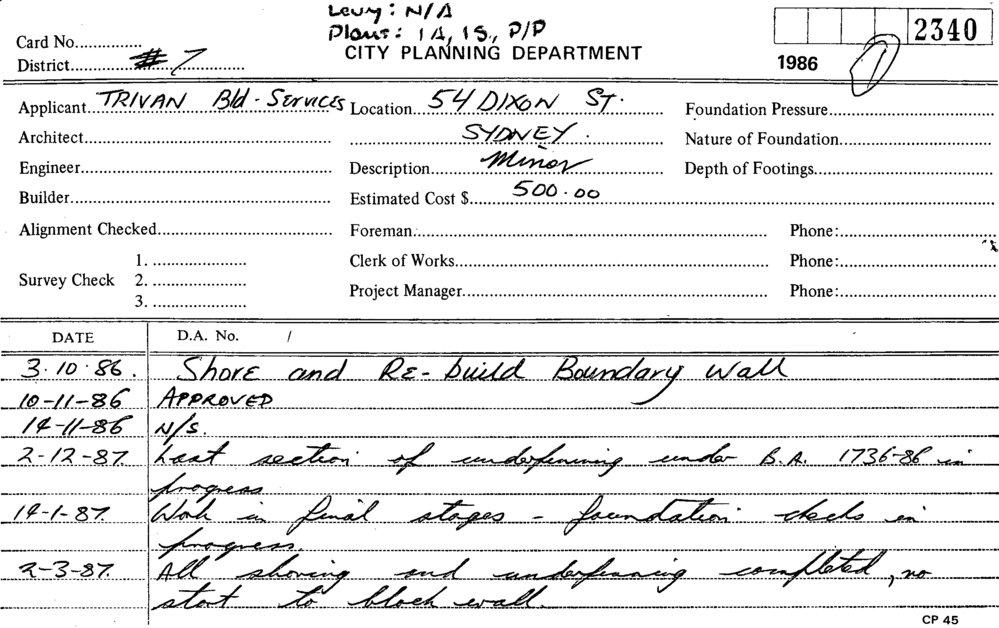 Levy: N/A
Plans: 1A, 1S, P/P
CITY PLANNING DEPARTMENT
2340
Card No.
District # 7
1986
Applicant TRIVAN Bld - Services Location 54 DIXON ST. Foundation Pressure
Architect SYDNEY. Nature of Foundation
Engineer Description Minor Depth of Footings
Builder Estimated Cost $ 500.00
Alignment Checked Foreman Phone:
Survey Check 1. Clerk of Works Phone:
2.
3. Project Manager Phone:
DATE D.A. No. /
3.10.86. Shore and Re-build Boundary Wall
10-11-86 APPROVED
14-11-86 N/S.
2-12-87. Last section of underpinning under B.A. 1736-86 in
progress
14-1-87. Work in final stages - foundation checks in
progress.
2-3-87. All shoring and underpinning completed, no
start to block wall.
CP 45